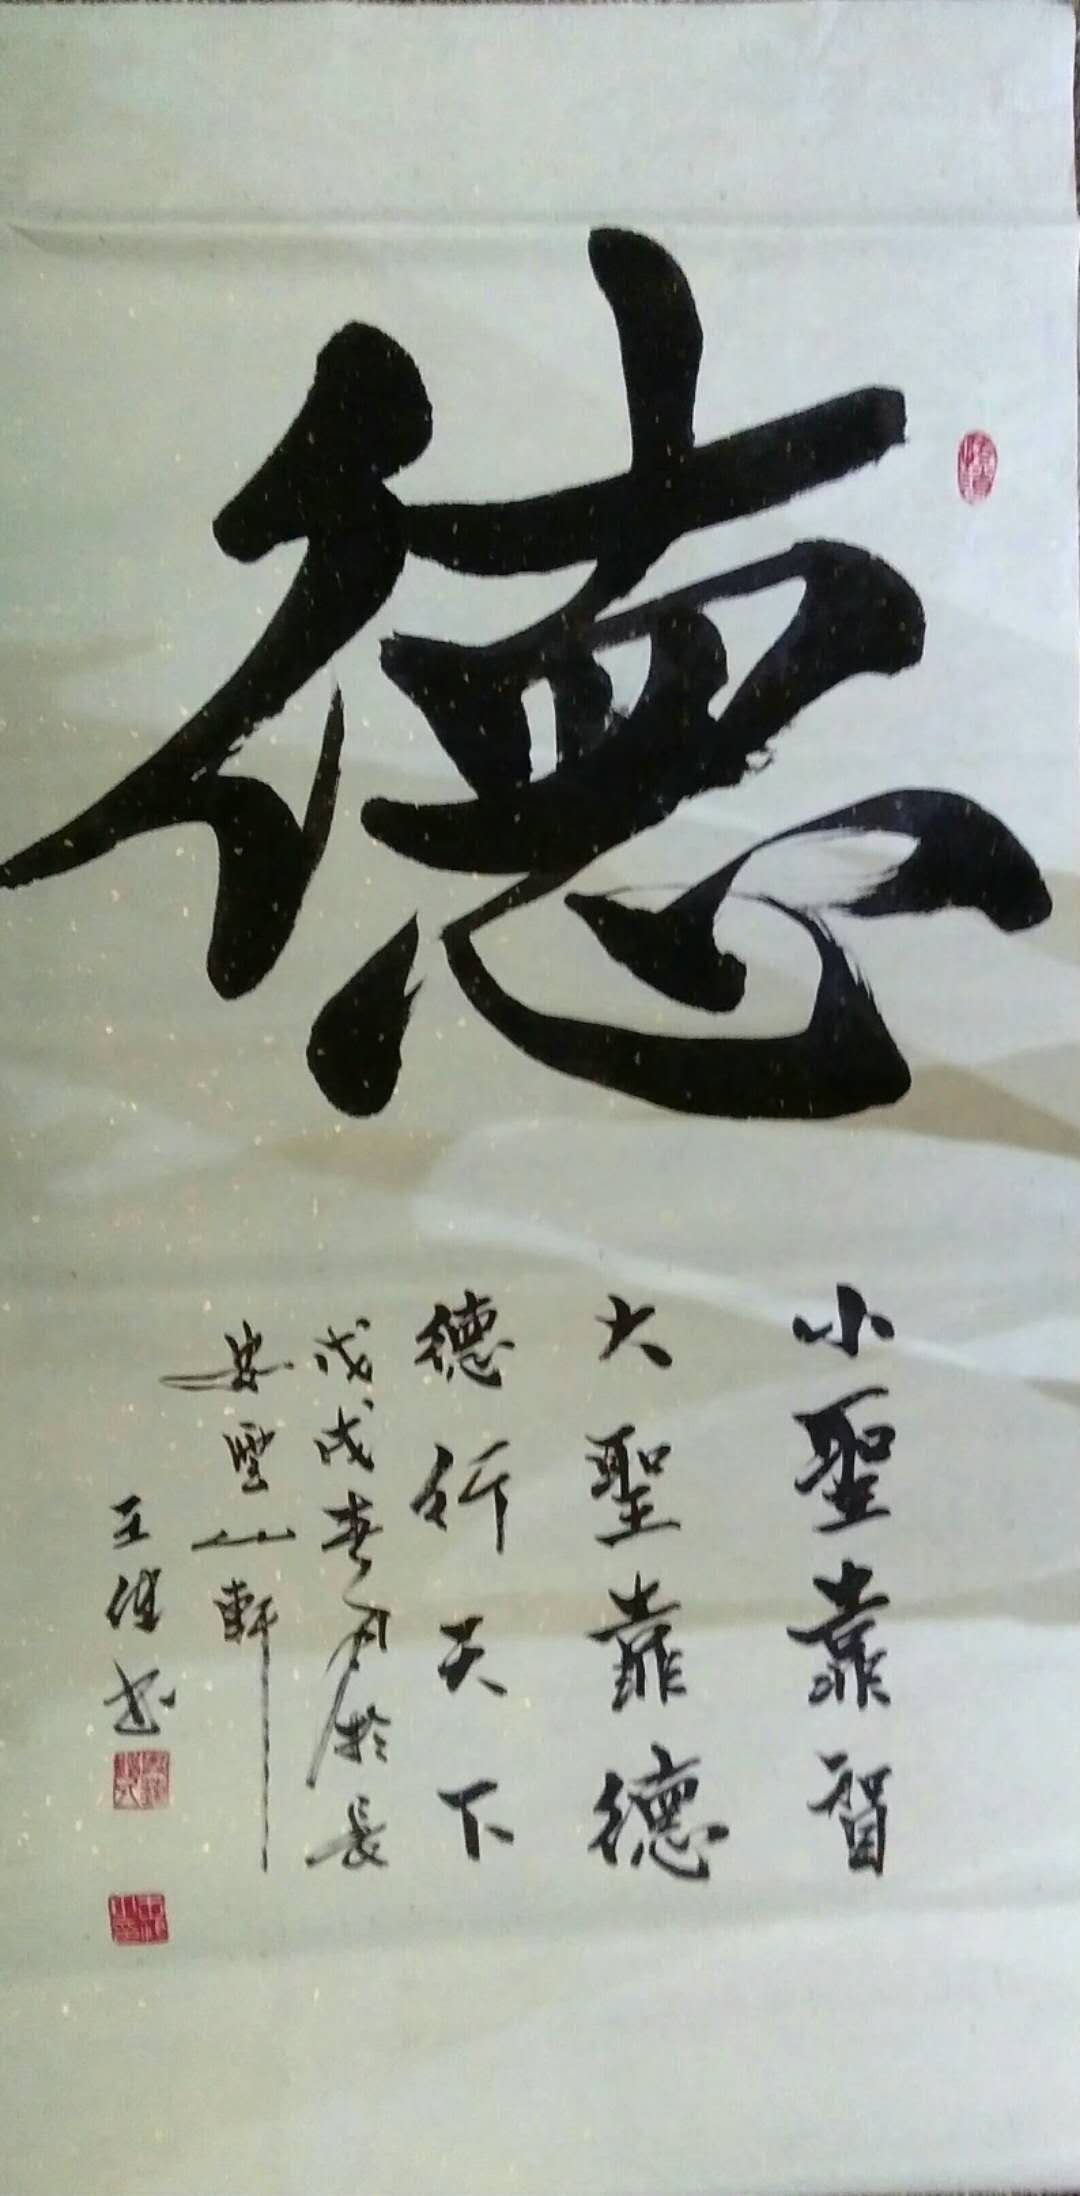 德
小聖靠智
大聖靠德
德行天下
戊戌春月於長
安雲山軒
王 书